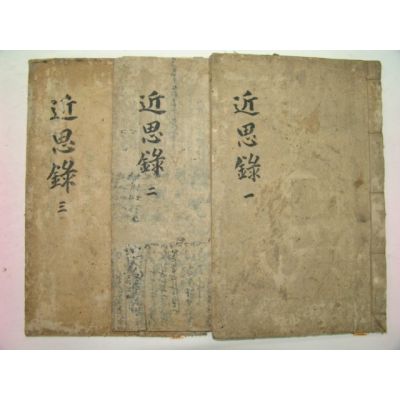 近思錄 一
近思錄 二
近思錄 三